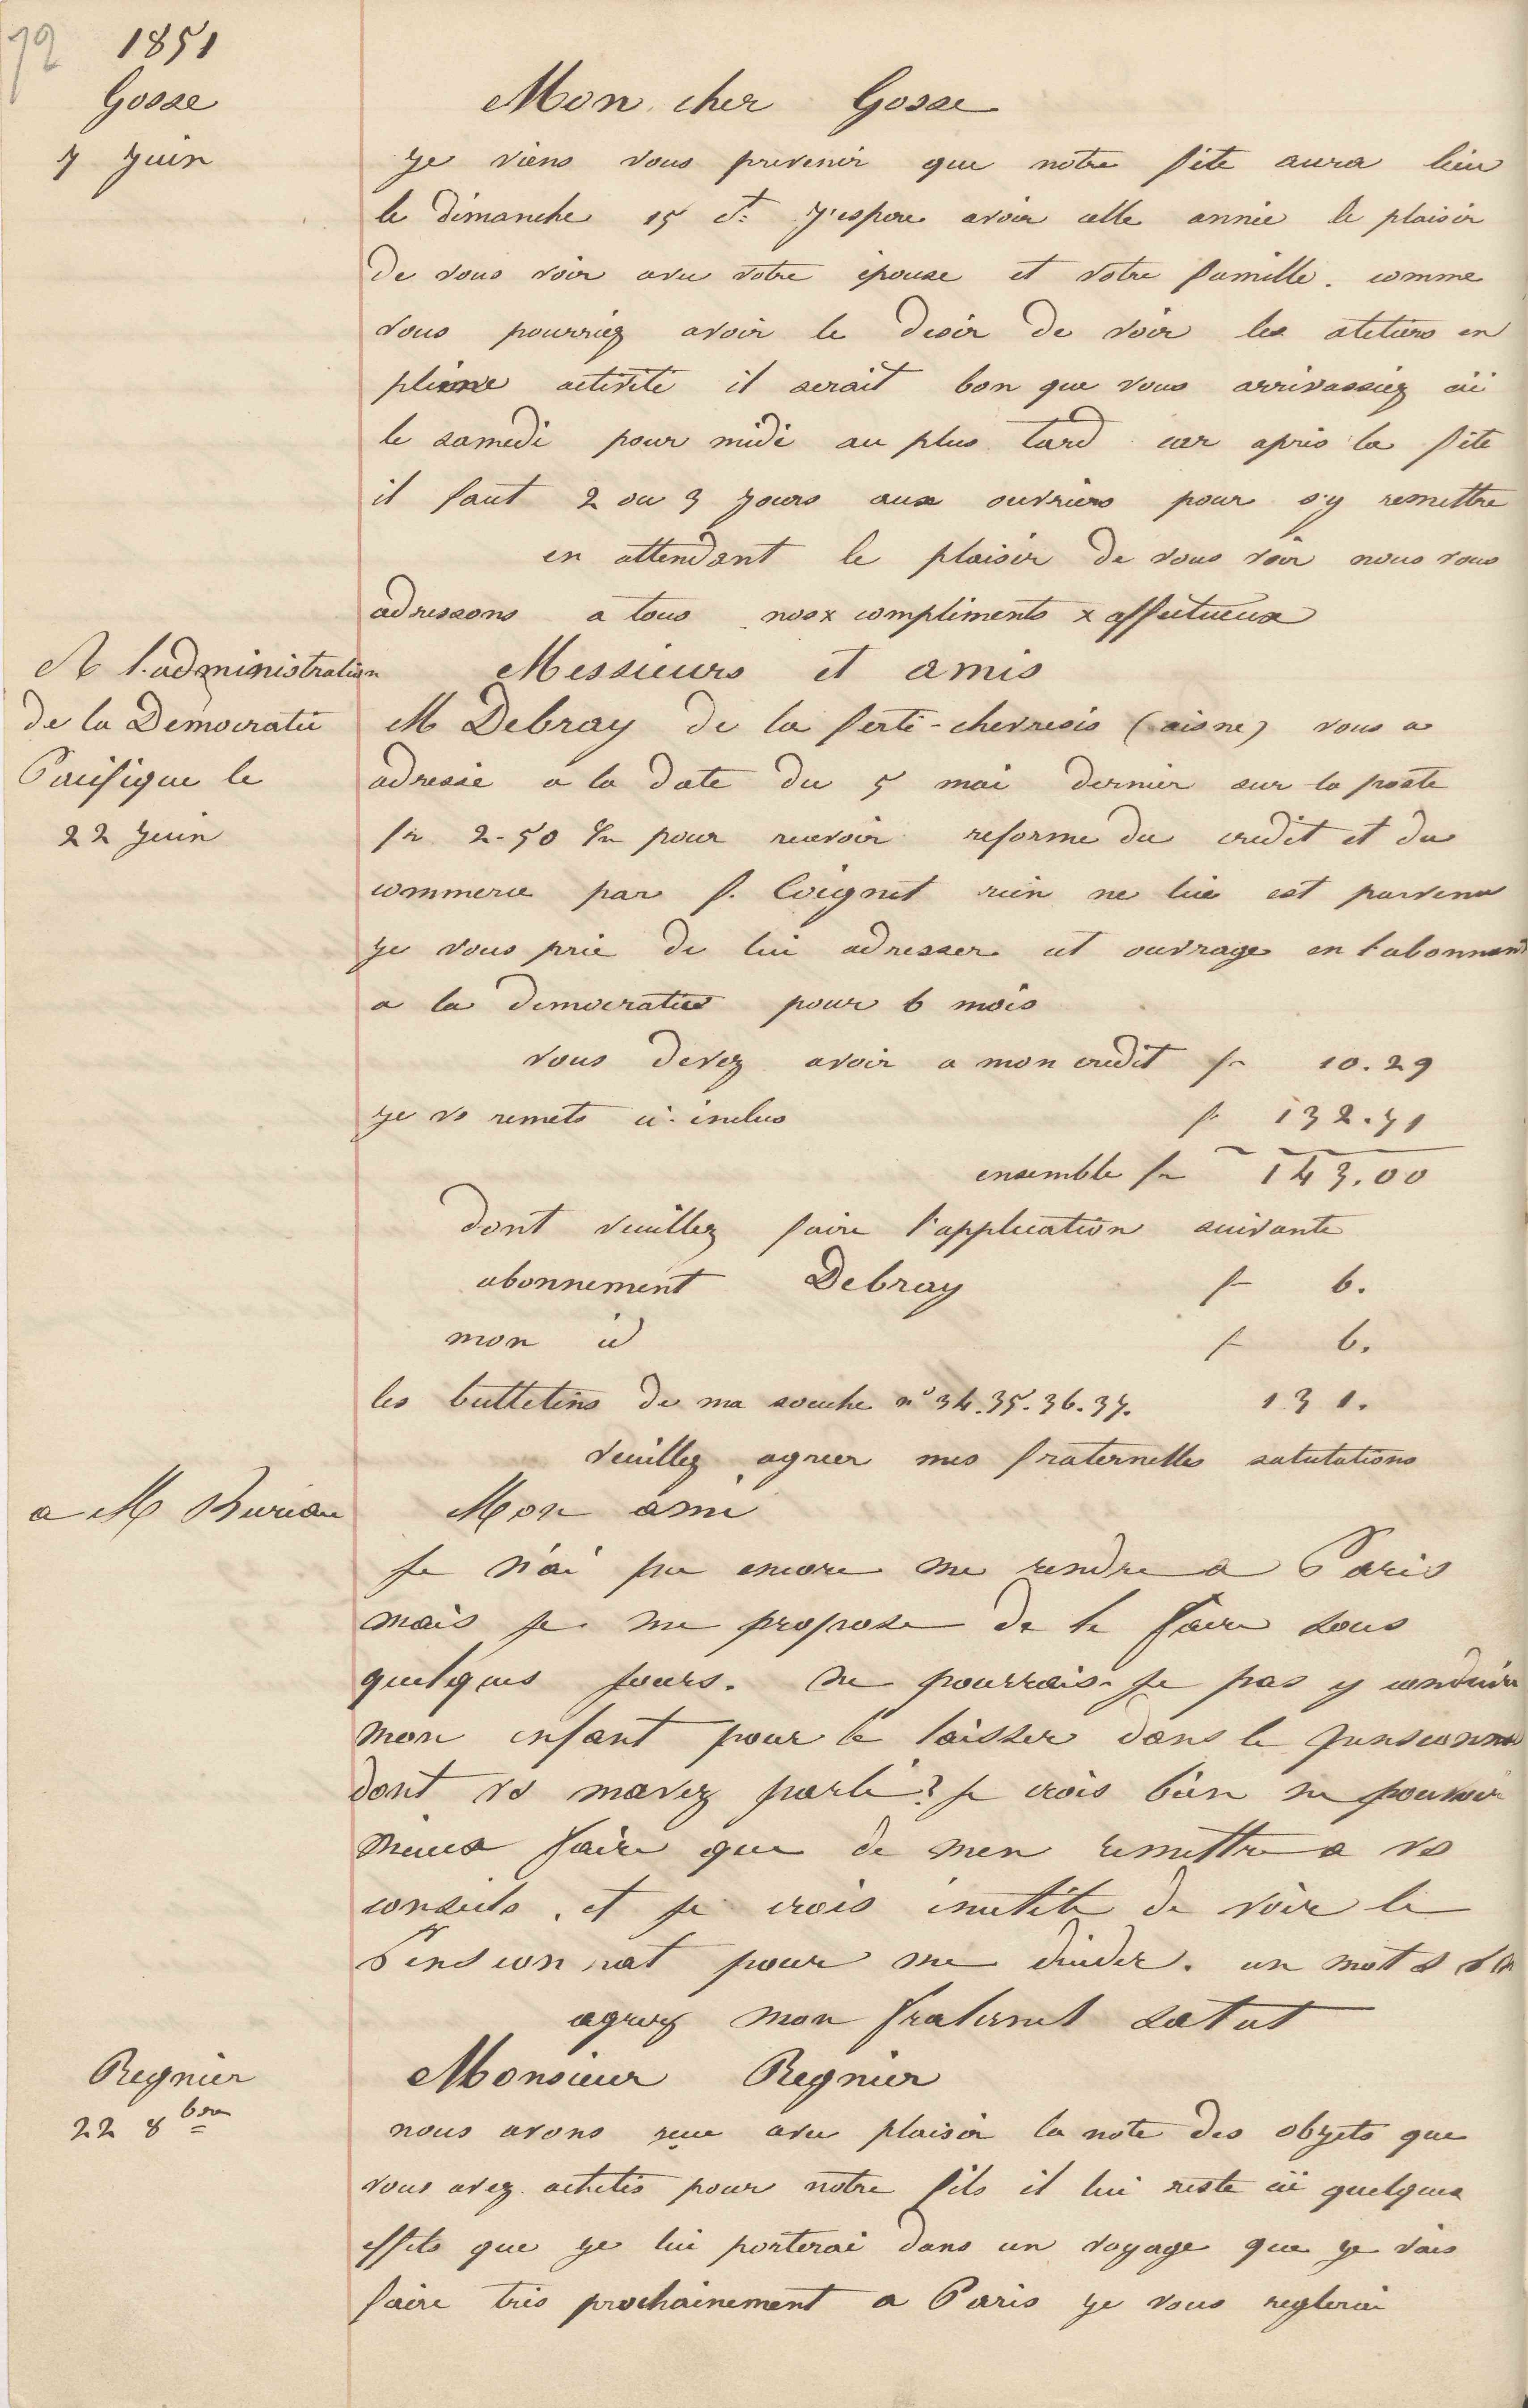 72 1851
Gosse
7 juin
Mon cher Gosse
je viens vous prevenir que notre fête aura lieu
le dimanche 15 ct. j'espere avoir cette année le plaisir
de vous voir avec votre épouse et votre famille. comme
vous pourriez avoir le desir de voir les ateliers en
pleine activité il serait bon que vous arrivassiez ici
le samedi pour midi au plus tard car après la fête
il faut 2 ou 3 jours aux ouvriers pour s'y remettre
en attendant le plaisir de vous voir nous vous
adressons a tous nos x compliments x affectueux
A l'administration
de la Democratie
Pacifique le
22 juin
Messieurs et amis
M Debray de la ferté-chevresis (aisne) vous a
adressé a la date du 5 mai dernier sur la poste
fr 2-50 pour recevoir reforme du credit et du
commerce par f. Coignet rien ne lui est parvenu
je vous prie de lui adresser cet ouvrage en l'abonnant
a la democratie pour 6 mois
vous devez avoir a mon credit fr 10.29
je vs remets ci-inclus f. 132.71
ensemble fr 143.00
dont veuillez faire l'application suivante
abonnement Debray f 6.
mon id f 6.
les bulletins de ma souche n° 34.35.36.37. 131.
veuillez agreer mes fraternelles salutations
a M Burian
Mon ami
je n'ai pu encore me rendre a Paris
mais je me propose de le faire sous
quelques jours. ne pourrais-je pas y conduire
mon enfant pour le laisser dans le pensionnat
dont vs mavez parlé? je crois bien ne pouvoir
mieux faire que de men remettre a vs
conseils, et je crois inutile de voir le
Pensionnat pour me decider. un mot s
agreez mon fraternel salut
Regnier
22 8bre
Monsieur Regnier
nous avons reçu avec plaisir la note des objets que
vous avez achetés pour notre fils il lui reste ici quelques
effets que je lui porterai dans un voyage que je vais
faire très prochainement a Paris je vous reglerai